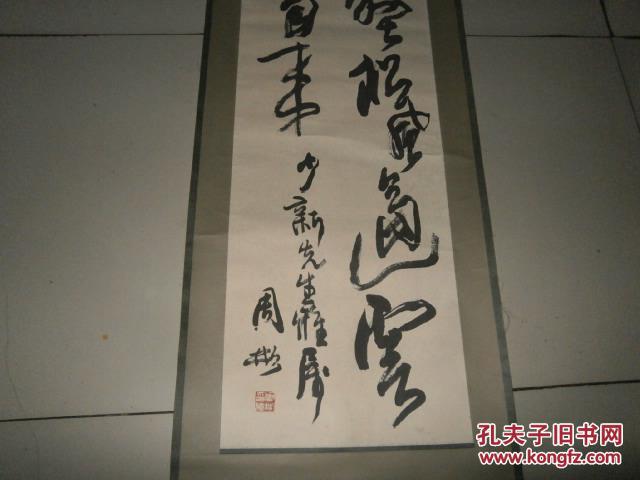 松風過雲
自来
少新先生雅属
周彬
孔夫子旧书网
www.kongfz.com